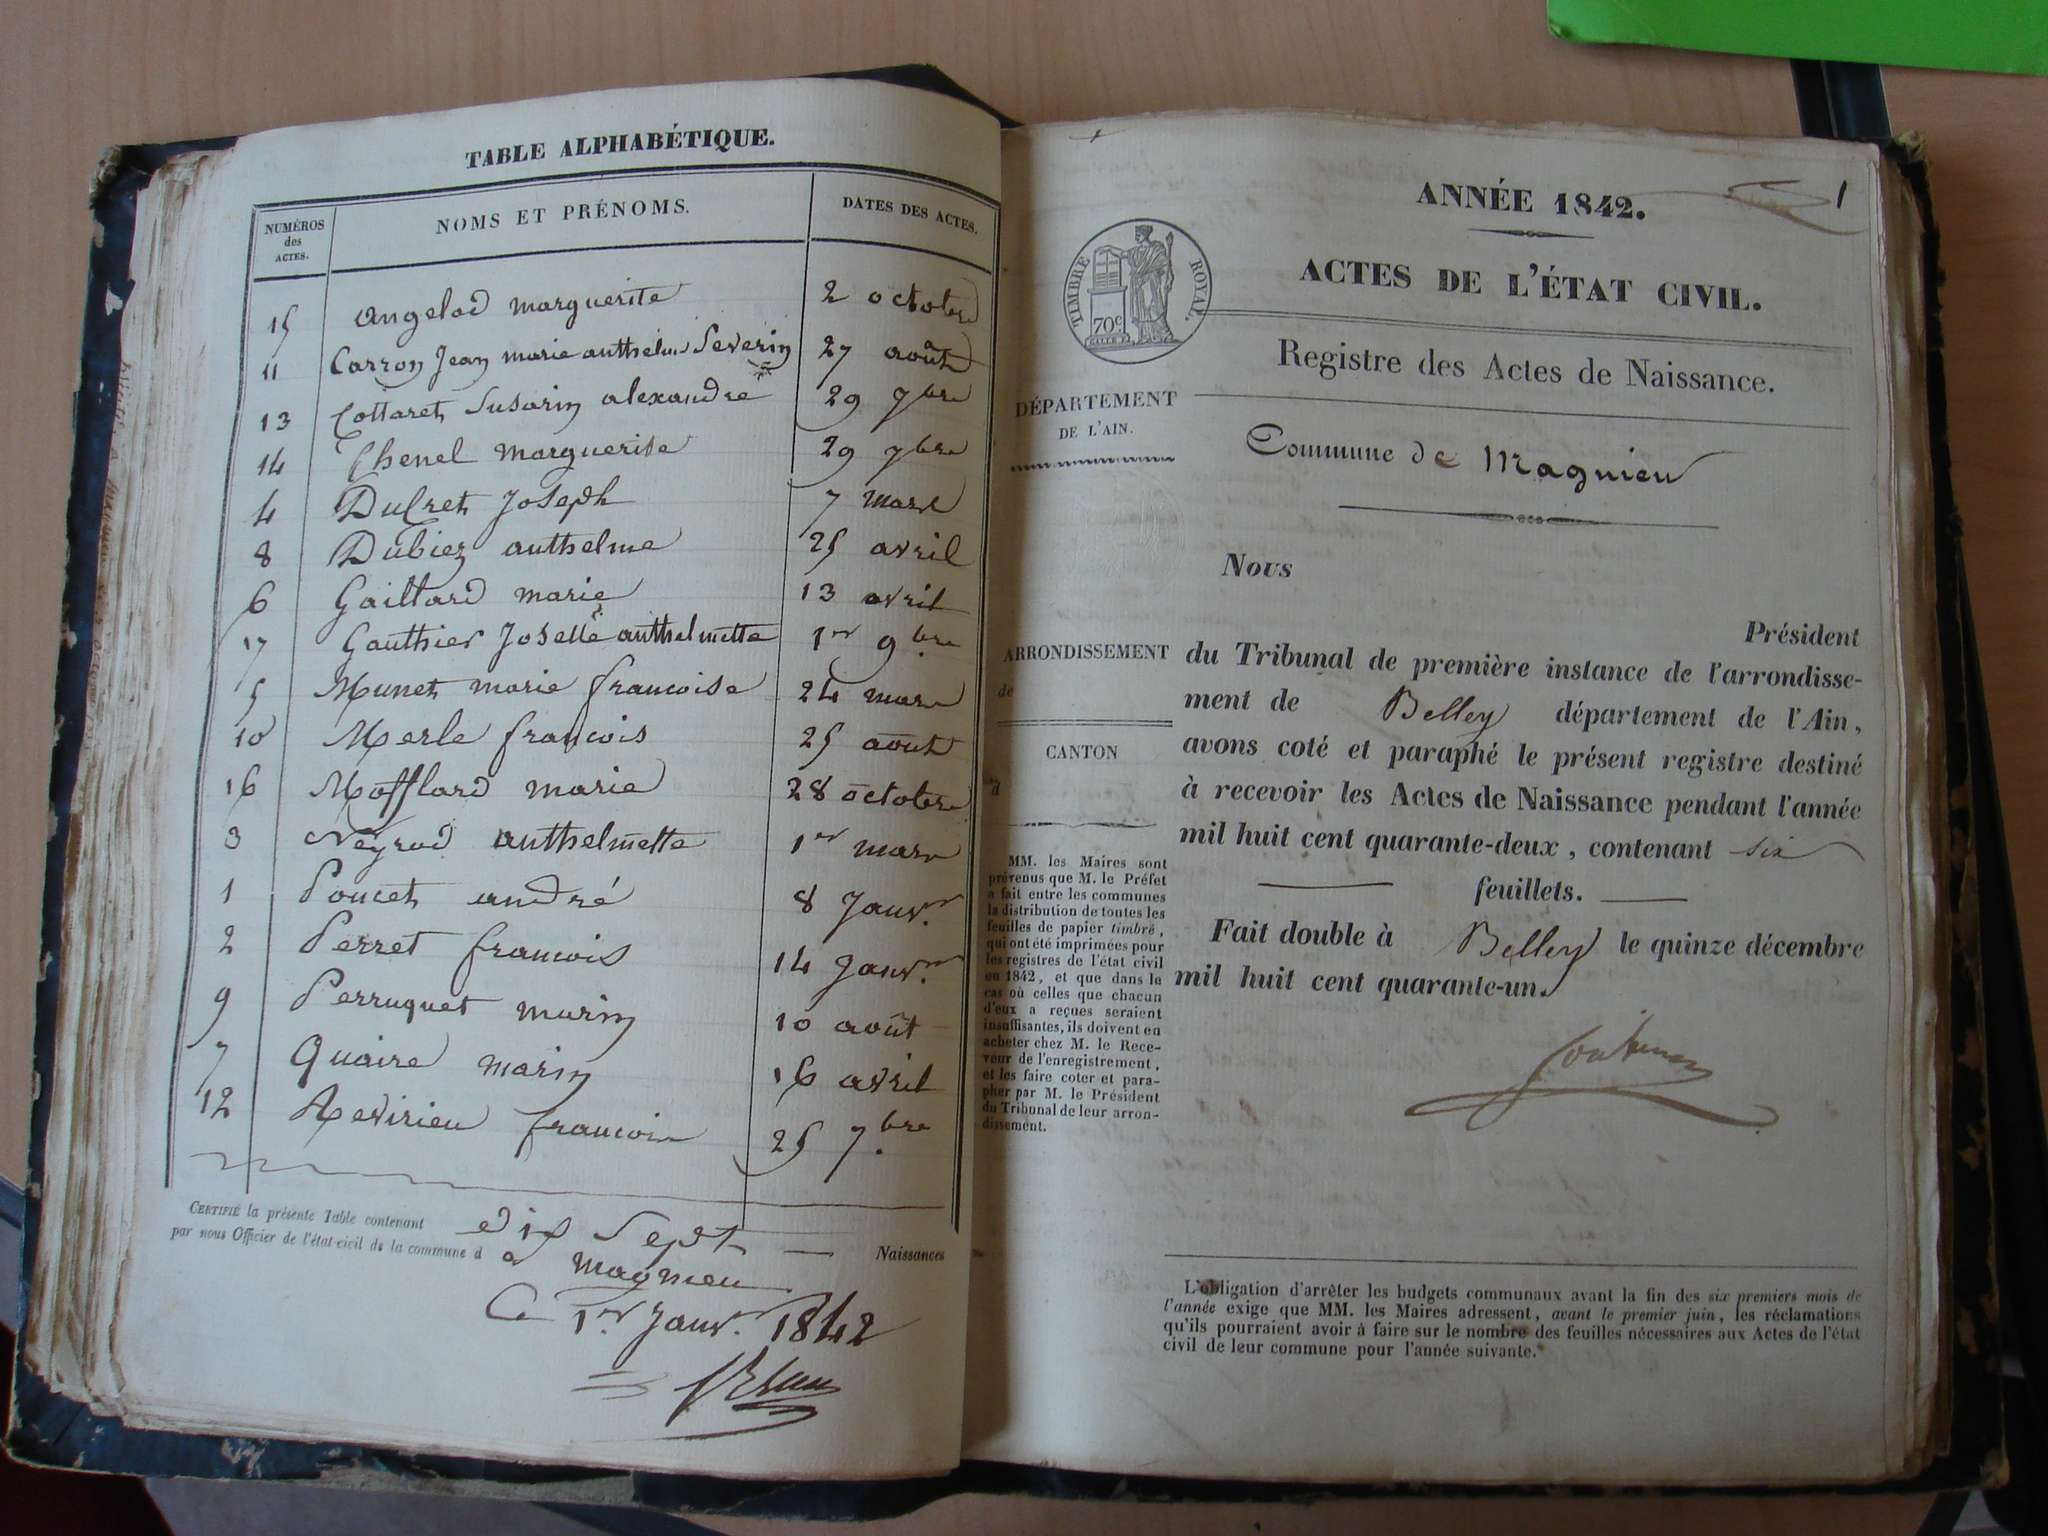 TABLE ALPHABÉTIQUE.
NUMÉROS des ACTES. NOMS ET PRÉNOMS. DATES DES ACTES.
15 Angelod marguerite 2 octobre
11 Carron Jean marie anthelme Severin 27 août
13 Cottaret Susarin alexandre 29 7bre
14 Chenel marguerite 29 7bre
4 Ducret Joseph 7 mars
8 Dubiez anthelme 25 avril
6 Gaillard marie 13 avril
17 Gauthier Josette anthelmette 1er 9bre
5 Munet marie francoise 24 mars
10 Merle francois 25 août
16 Mofflard marie 28 octobre
3 Neyrod anthelmette 1er mars
1 Poncet andré 8 Janvr.
2 Perret francois 14 Janvr.
9 Perruquet marin 10 août
7 Quaire marin 16 avril
12 Revirieu francois 25 7bre
CERTIFIÉ la présente Table contenant dix sept Naissances
par nous Officier de l'état-civil de la commune d e magnieu
Ce 1er Janv. 1842
1
ANNÉE 1842.
ACTES DE L'ÉTAT CIVIL.
TIMBRE ROYAL.
70c
Registre des Actes de Naissance.
DÉPARTEMENT
DE L'AIN.
Commune de Magnieu
Nous
Président
ARRONDISSEMENT
de
du Tribunal de première instance de l'arrondisse-
ment de Belley département de l'Ain,
avons coté et paraphé le présent registre destiné
à recevoir les Actes de Naissance pendant l'année
mil huit cent quarante-deux, contenant six
feuillets.
Fait double à Belley le quinze décembre
mil huit cent quarante-un.
CANTON
d
MM. les Maires sont
prévenus que M. le Préfet
a fait entre les communes
la distribution de toutes les
feuilles de papier timbré,
qui ont été imprimées pour
les registres de l'état civil
en 1842, et que dans le
cas où celles que chacun
d'eux a reçues seraient
insuffisantes, ils doivent en
acheter chez M. le Rece-
veur de l'enregistrement,
et les faire coter et para-
pher par M. le Président
du Tribunal de leur arron-
dissement.
L'obligation d'arrêter les budgets communaux avant la fin des six premiers mois de
l'année exige que MM. les Maires adressent, avant le premier juin, les réclamations
qu'ils pourraient avoir à faire sur le nombre des feuilles nécessaires aux Actes de l'état
civil de leur commune pour l'année suivante.